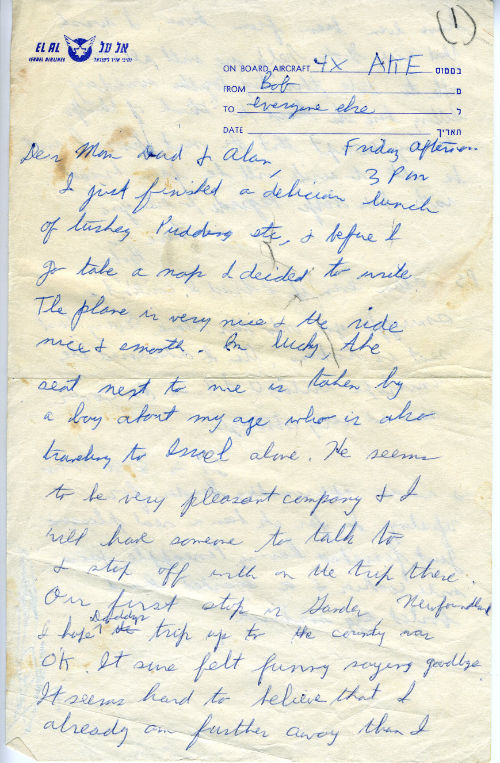 (1)
EL AL אל על
ISRAEL AIRLINES נתיבי אויר לישראל
ON BOARD AIRCRAFT 4X AKE במטוס
FROM Bob מ
TO everyone else ל
DATE תאריך
Friday afternoon
3 PM
Dear Mom Dad & Alan,
I just finished a delicious lunch
of turkey Pudding etc, & before I
go take a nap I decided to write.
The plane is very nice & the ride
nice & smooth. Im lucky, the
seat next to me is taken by
a boy about my age who is also
traveling to Israel alone. He seems
to be very pleasant company & I
will have someone to talk to
& stop off with on the trip there.
Our first stop is Gander, Newfoundland
I hope Daddys trip up to the country was
OK. It sure felt funny saying goodbye.
It seems hard to believe that I
already am further away than I